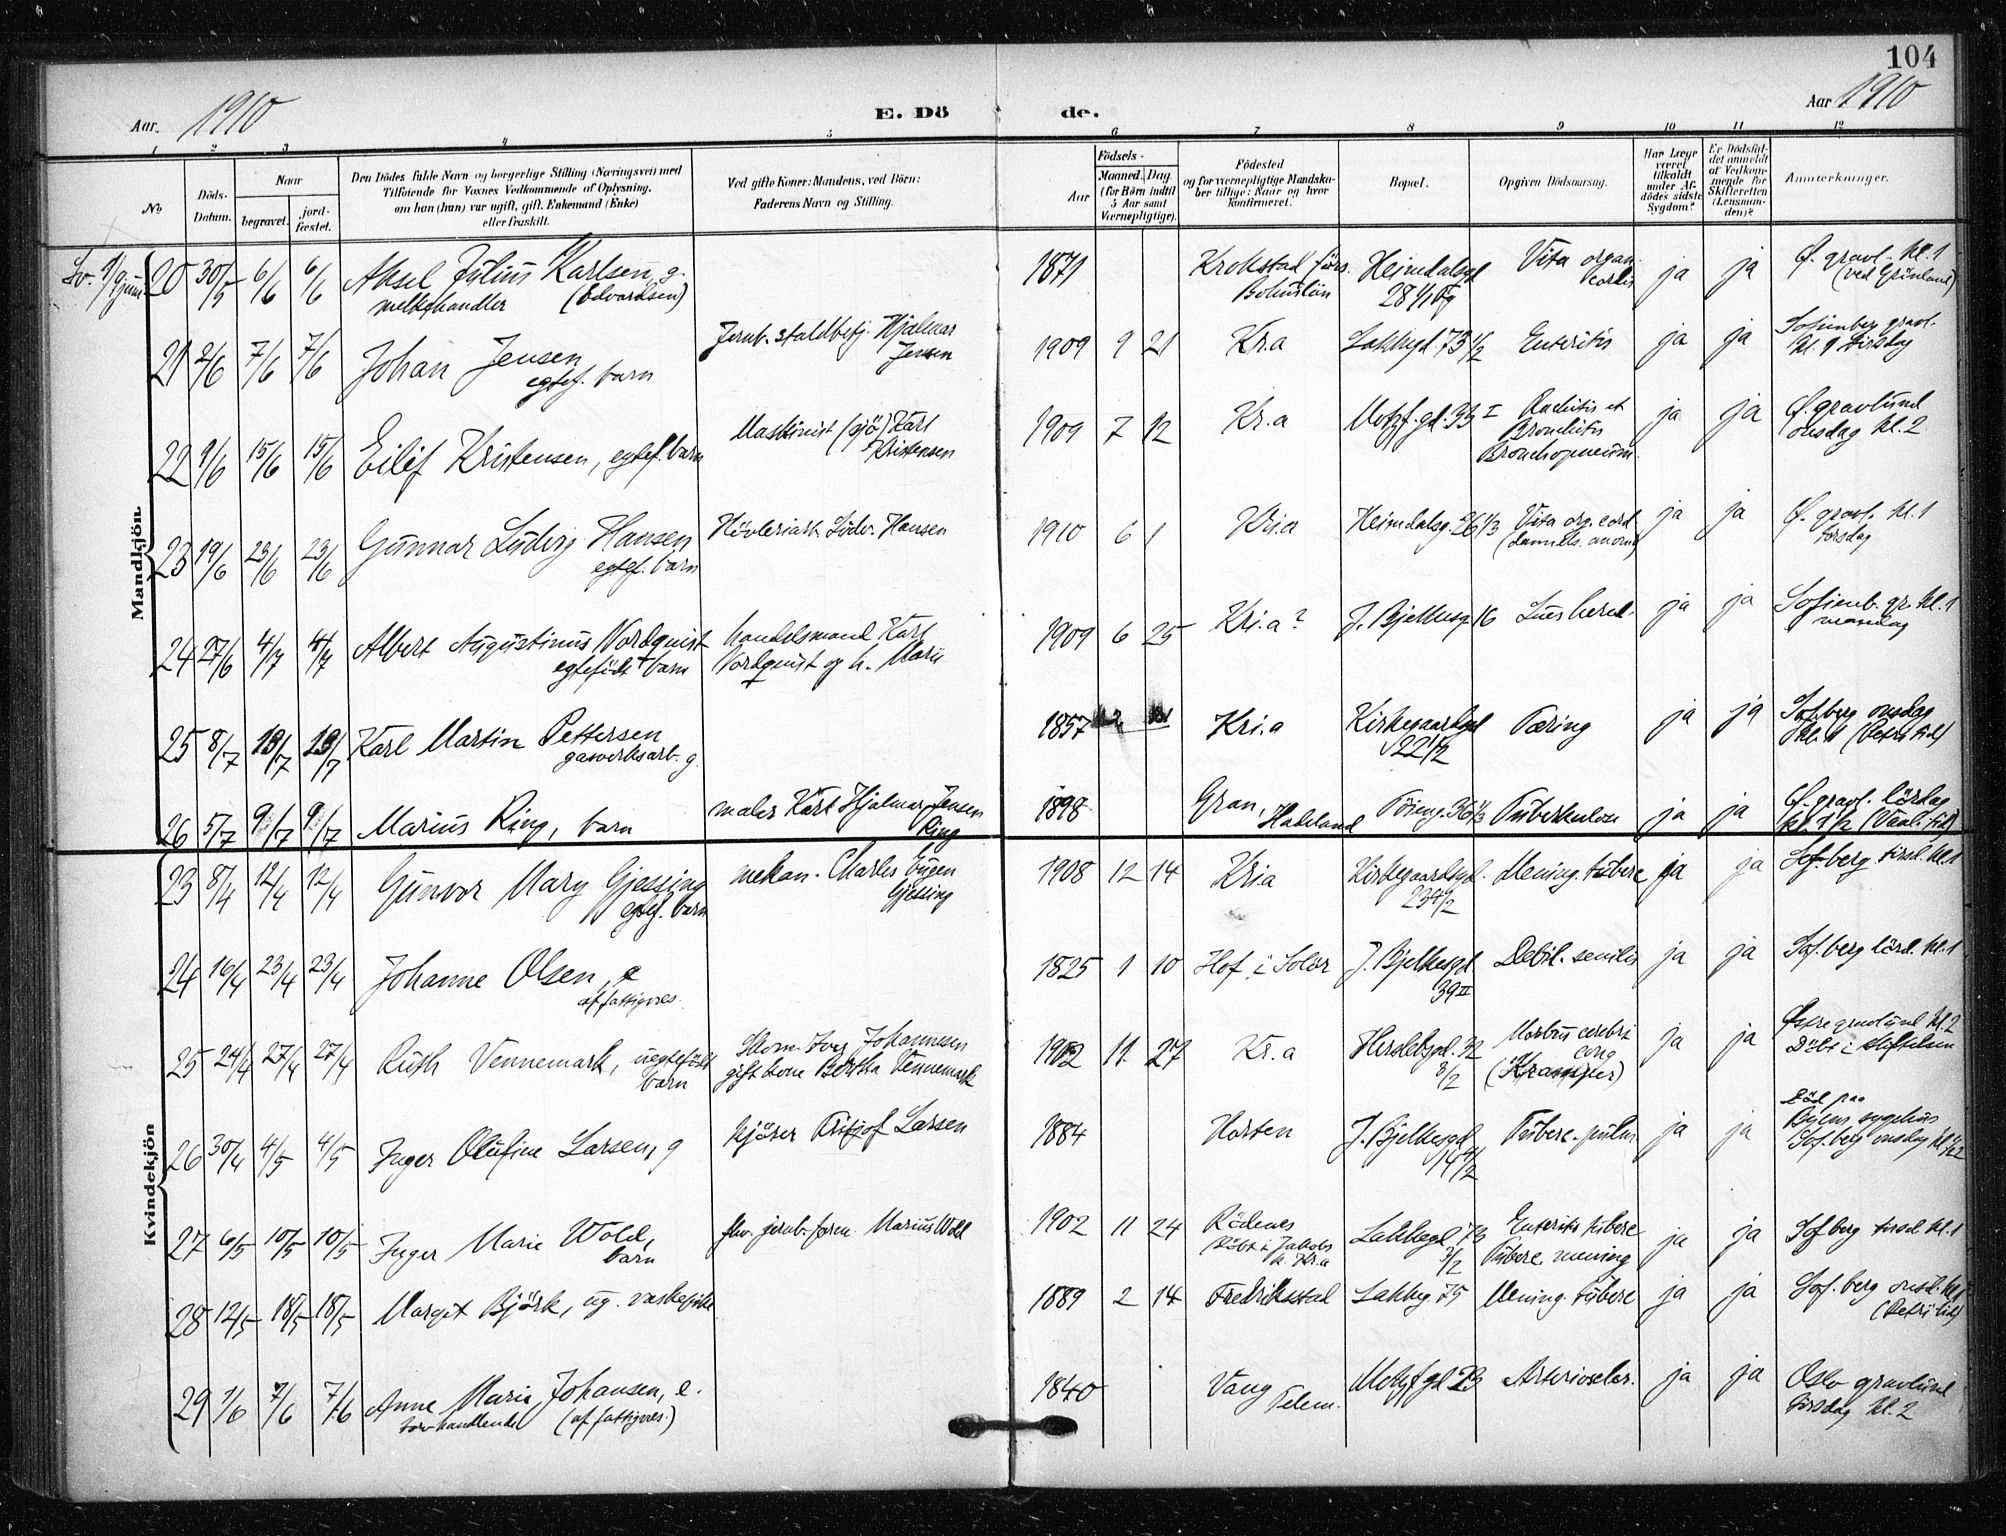 104
Aar. 1910
E. Dö
de.
Aar 1910
1 2 3 4 5 6 7 8 9 10 11 12
No
Döds-Datum.
Naar
begravet.
jord-fæstet.
Den Dödes fulde Navn og borgerlige Stilling (Næringsvei) med
Tilföiende for Voxnes Vedkommende af Oplysning,
om han (hun) var ugift, gift, Enkemand (Enke)
eller fraskilt.
Ved gifte Koner: Mandens, ved Börn:
Faderens Navn og Stilling.
Födsels-
Aar
Maaned. Dag.
(for Börn indtil
5 Aar samt
Værnepligtige).
Födested
og for værnepligtige Mandska-
ber tillige: Naar og hvor
konfirmeret.
Bopæl.
Opgiven Dödsaarsag.
Har Læge
været
tilkaldt
under Af-
dödes sidste
Sygdom?
Er Dödsfal-
det anmeldt
af Vedkom-
mende for
Skifteretten
(Lensman-
den)?
Anmærkninger.
Mandkjön.
20 30/5 6/6 6/6 Aksel Julius Karlsen, g. 1871 Krokstad Heimdalsgd Vita organ. ja ja Ø. gravl. kl. 1
melkehandler (Edvardsen) Bohuslän 28 cordis (ved Grönland)
21 2/6 7/6 7/6 Johan Jensen Jernb. staldbetj. Hjalmar 1909 9 21 Kr.a Lakkegd 73 1/2 Enteritis ja ja Sofienberg gravl.
egtef. barn Jensen kl. 1 tirsdag
22 9/6 15/6 15/6 Eilif Kristensen, egtef. barn Maskinist (sjö) Karl 1909 7 12 Kr.a Motzf. gd. 33 I Rachitis et ja ja Ø. gravlund
Kristensen Bronchitis onsdag kl. 2
Bronchopneum.
23 19/6 23/6 23/6 Gunnar Ludvig Hansen Hövleriarb. Ludv. Hansen 1910 6 1 Kr.a Heimdalsg. 26 1/3 Vita org. cord ja ja Ø. gravl. kl. 1
egtef. barn torsdag
24 27/6 4/7 4/7 Albert Augustinus Nordquist handelsmand Karl 1909 6 25 Kr.a? J. Bjelkesg 16 Lues hered. ja ja Sofienb. gr. kl. 1
egtefödt barn Nordquist og h. Marie mandag
25 8/7 13/7 13/7 Karl Martin Pettersen 1857 Kr.a Kirkegaardsgd Tæring ja ja Sof.berg onsdag
gasverksarb. g. 22 1/2 kl. 1 (Petri tid)
26 5/7 9/7 9/7 Marius Ring, barn maler Karl Hjalmar Jensen 1898 Gran, Töieng. 36 1/3 Tuberkulose ja ja Ø. gravl. lördag
Ring Hadeland
Kvindekjön
23 8/4 12/4 12/4 Gunvor Mary Gjessing mekan. Charles Eugen 1908 12 14 Kr.a Kirkegaardsgd. Mening. tuberc ja ja Sof.berg tirsd. kl. 1
egtef. barn Gjessing
24 16/4 23/4 23/4 Johanne Olsen, e 1825 1 10 Hof i Solör J. Bjelkesgd Debil. senilis ja ja Sof.berg lörd. kl. 1
af fattigves. 39 II
25 24/4 27/4 27/4 Ruth Vennemark, uegtefödt Skom. Johannesen 1902 11 27 Kr.a Herslebsgd. Morbus cerebri ja ja Østre gravlund kl. 2
barn gift kone Bertha Vennemark (Kramper) Döbt i stiftelsen
26 30/4 4/5 4/5 Inger Olufine Larsen, g kjörer Fritjof Larsen 1884 Horten J. Bjelkesgd Tuberc. pulm ja ja Död paa
Byens sygehus
Sof.berg onsdag
27 6/5 10/5 10/5 Inger Marie Wold, Marius Wold 1902 11 24 Rödenes Lakkegd 73 Enteritis tuberc ja ja Sofberg tirsd kl. 1
barn döbt i Jakobs k. Kr.a Tuberc. mening
28 12/5 18/5 18/5 Margit Björk, ug. vaskepike 1889 2 14 Fredrikstad Lakkeg 75 Mening. tuberc ja ja Sof.berg onsd. kl. 1
(Petri tid)
29 1/6 7/6 7/6 Anne Marie Johansen, e. 1840 Vang Motzf gd 23 Arterioscler. ja ja Oslo gravlund
torvhandlende (af fattigves.) Telem. tirsdag kl. 2